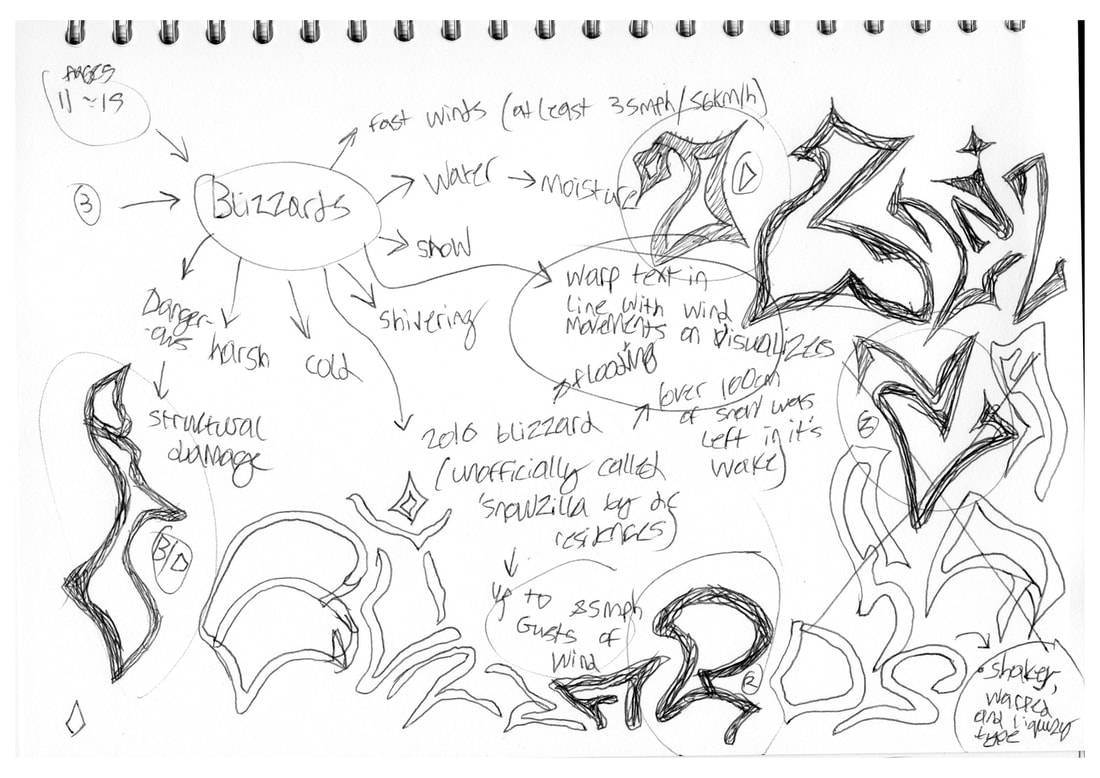 PAGES
11~19
3
Blizzards
Fast winds (at least 35mph/56km/h)
Water → Moisture
snow
warp text in
line with wind
movements an visualizes
shivering
cold
harsh
Danger-
-ous
structural
damage
flooding
2016 blizzard
(unofficially called
'snowzilla by dc
residences)
(over 100cm
of snow was
left in it's
wake)
up to 85mph
Gusts of
Wind
B/D
D
R
BLIZZARDS
• shakey,
warped
and liquized
type